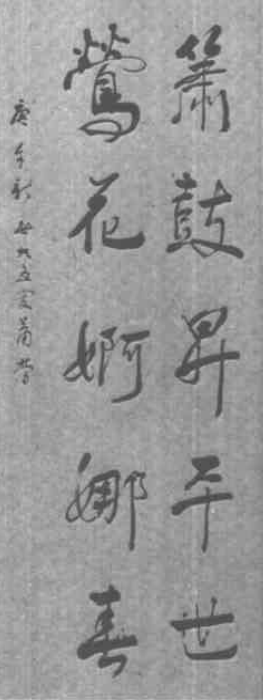 簫鼓昇平世
鶯花婀娜春
庚午秋